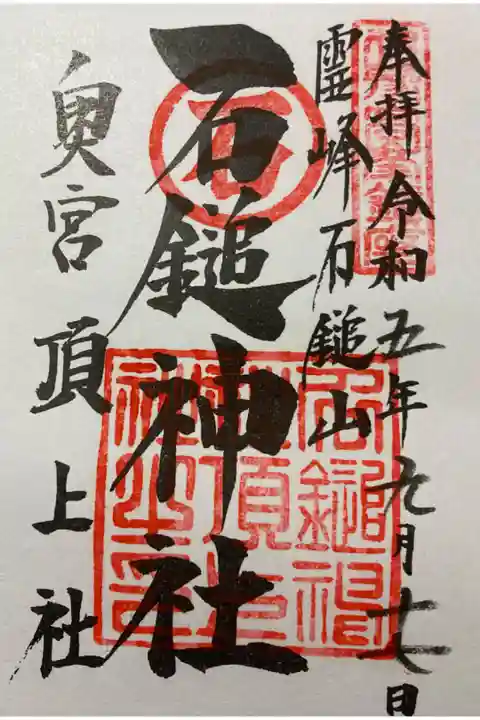 奉拝 令和五年九月十七日
霊峰石鎚山
石鎚神社
奥宮 頂上社
石
石鎚神社頂上社之印